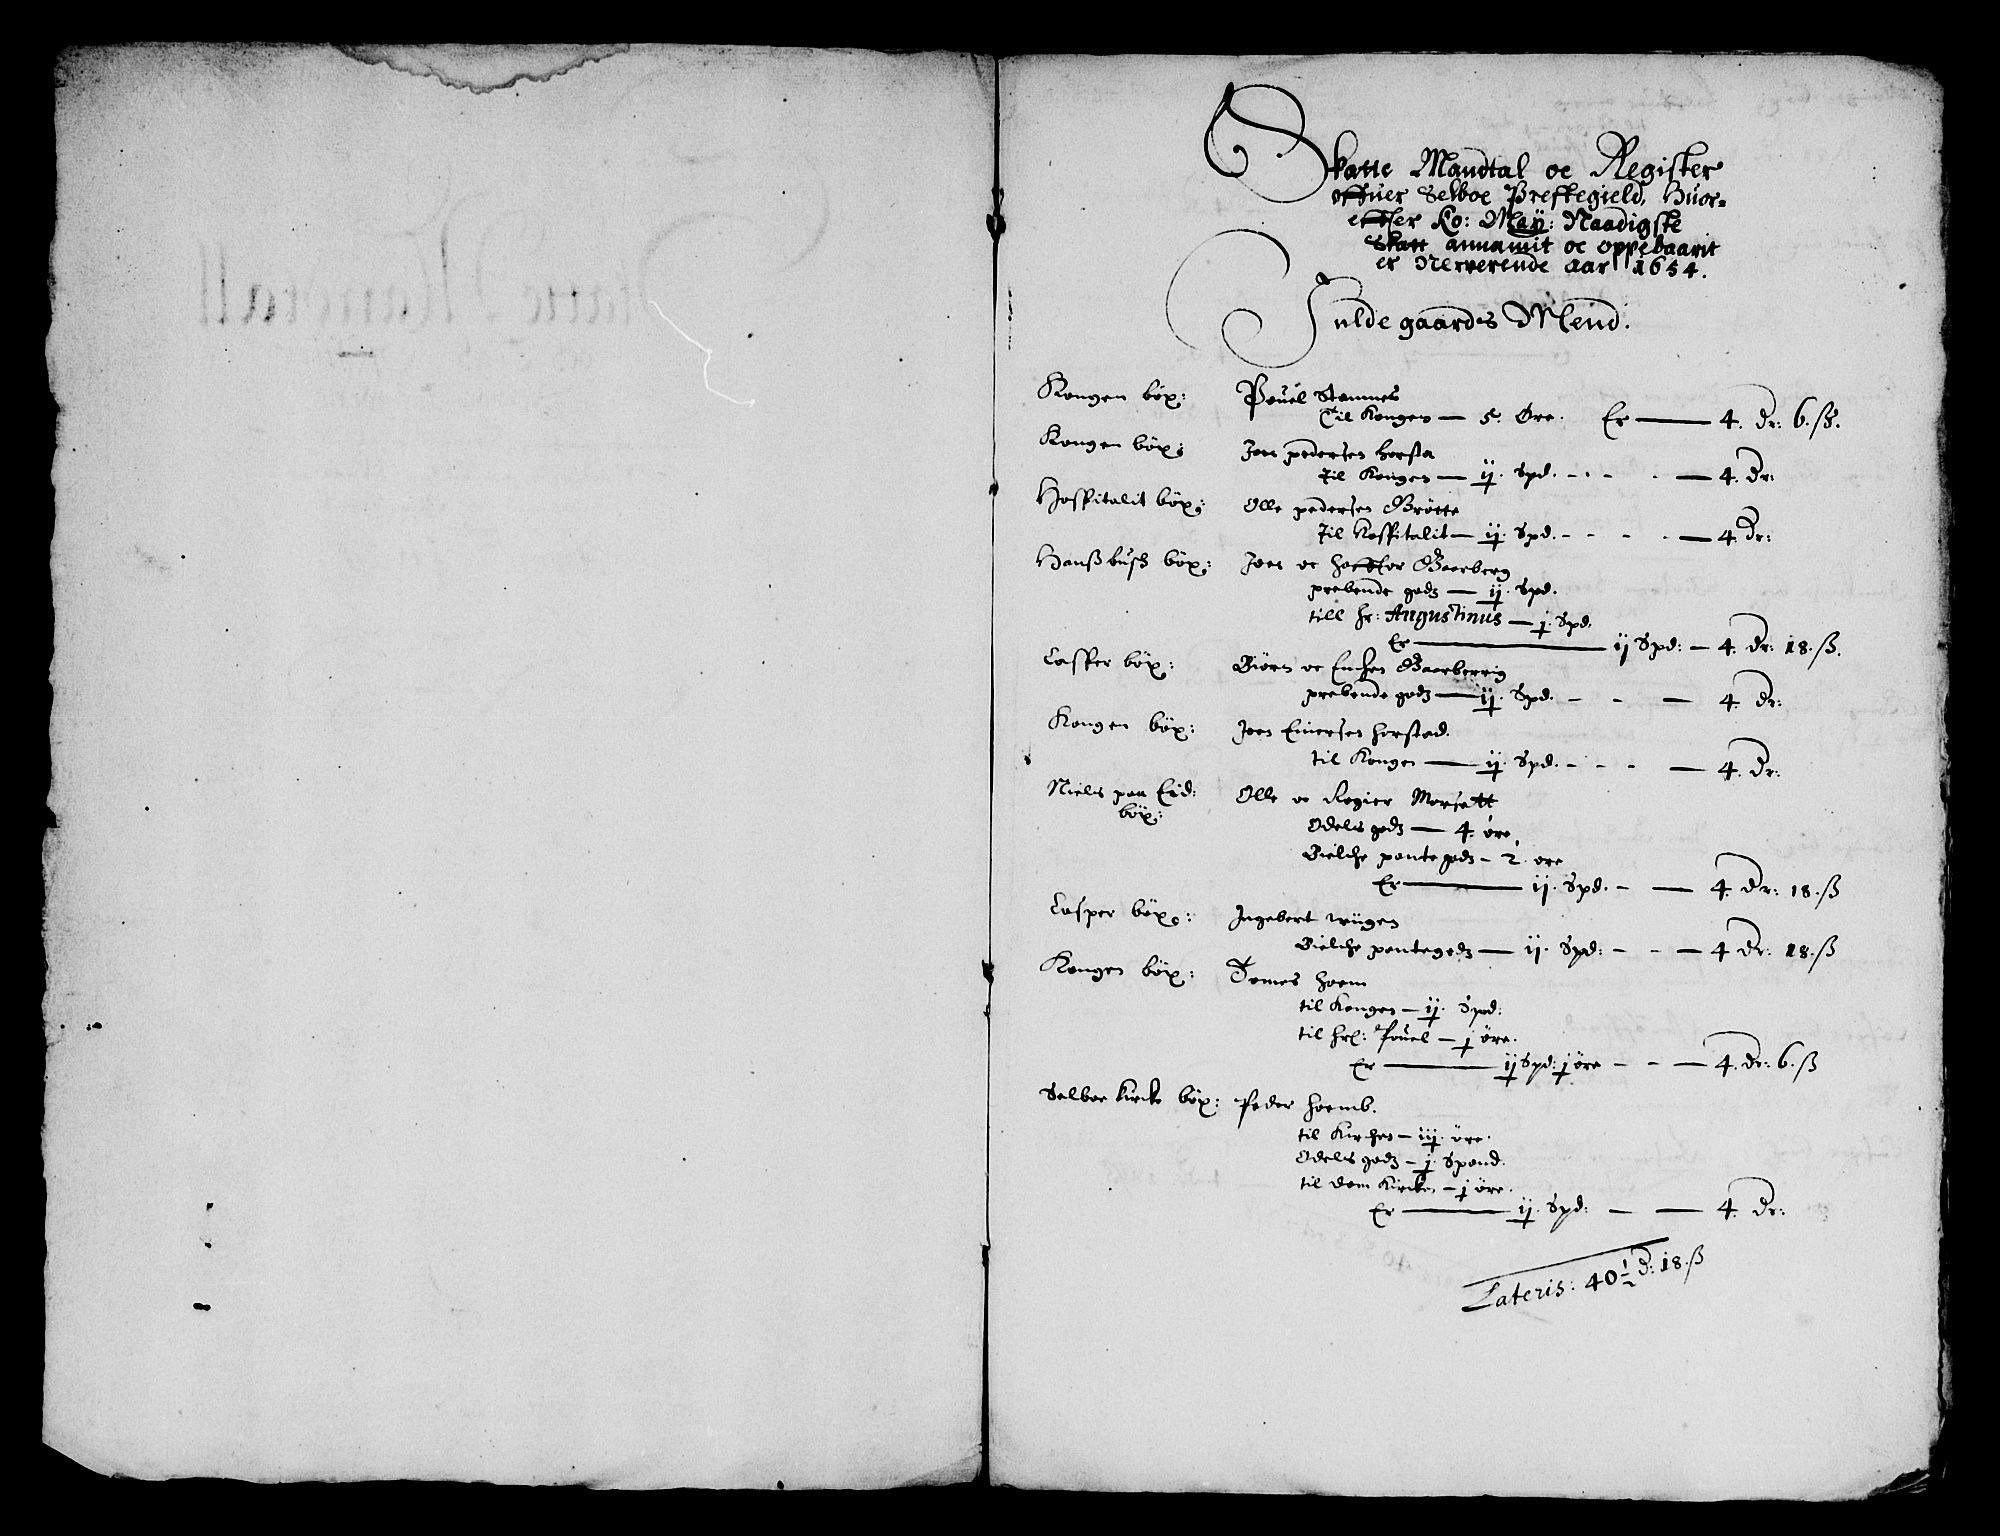 Skatte Mandtal oc Register
offuer Selboe Prestegield, Huor=
effter Ko: May: Naadigste
Skatt annamit oc oppebaarit
er Nerverende aar 1654.
Fulde gaards Mend.
Kongen böx: Pouel Stammes
Til Kongen — 5. Öre. Er — 4. dr: 6. ß.
Kongen böx: Joen pedersen horsta
til Kongen — ij. Spd. - - - — 4. dr:
Hospitalit böx: Olle pedersen Brötte
til Hospitalit — ij. Spd. - - - — 4. dr:
Hanß bush böx: Joen oc hafftor Gaarberg
prebende godz — ij. Spd.
till hr: Augustinus — j. Spd.
Er — ij Spd: — 4. dr: 18. ß.
Casper böx: Biörn oc Enchen Gaarberrig
prebende godz — ij. Spd. - - — 4. dr:
Kongen böx: Joen Einersen horstad.
til Kongen — ij. Spd. - - - — 4. dr:
Niels paa Eid: Olle oc Regier Morsett
böx:
Odels godz — 4. öre
Bielche pante godz - 2. öre
Er — ij. Spd. - — 4. dr: 18. ß
Casper böx: Ingebert
Bielche pantegodz — ij. Spd: - - — 4 dr: 18. ß
Kongen böx: Tomes hoem
til Kongen — ij. Spd:
til hr: Pouel — j öre.
Er — ij Spd: j öre - - — 4. dr: 6. ß
Selboe Kircke böx: Peder hoemb.
til Kirchen — iij. öre.
Odels godz — j. Spand.
til dom Kircken — j öre.
Er — ij. Spd: — — 4. dr:
Lateris: 40½ d: 18. ß